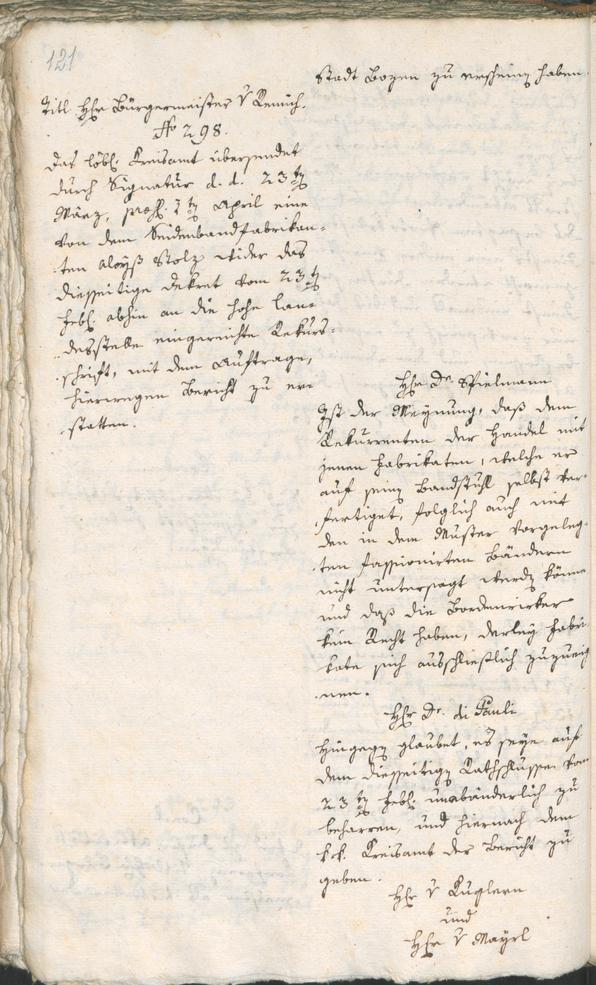 121
Titl. Hr Bürgermeister v Remich.
No 298.
Das löbl. Kreisamt übersendet
durch Signatur d. d. 23tn
März, pros. 7tn April eine
von dem Seidenbandfabrikan-
ten Aloyß Stolz wider das
diesseitige Dekret vom 23tn
Febl. abhin an die hohe Lan-
desstelle eingereichte Rekurs-
schrift, mit dem Auftrage,
hierwegen Bericht zu er-
statten.
Stadt Bozen zu erscheinen haben.
Hr Dr Spielmann
Ist der Meynung, daß dem
Rekurrenten der Handel mit
jenen Fabrikaten, welche er
auf seinen Bandstühl selbst ver-
fertiget, folglich auch mit
den in dem Muster vorgeleg-
ten fassionirten Bändern
nicht untersagt werden könne
und daß die Bordenwirker
kein Recht haben, derley Fabri-
kate sich ausschließlich zuzueig-
nen.
Hr Dr. di Pauli
Hingegen glaubet, es seye auf
dem diesseitigen Rathschlusse vom
23tn Febl. unabänderlich zu
beharren, und hiernach dem
k. k. Kreisamt der Bericht zu
geben.
Hr v Kuglern
und
Hr v Mayrl